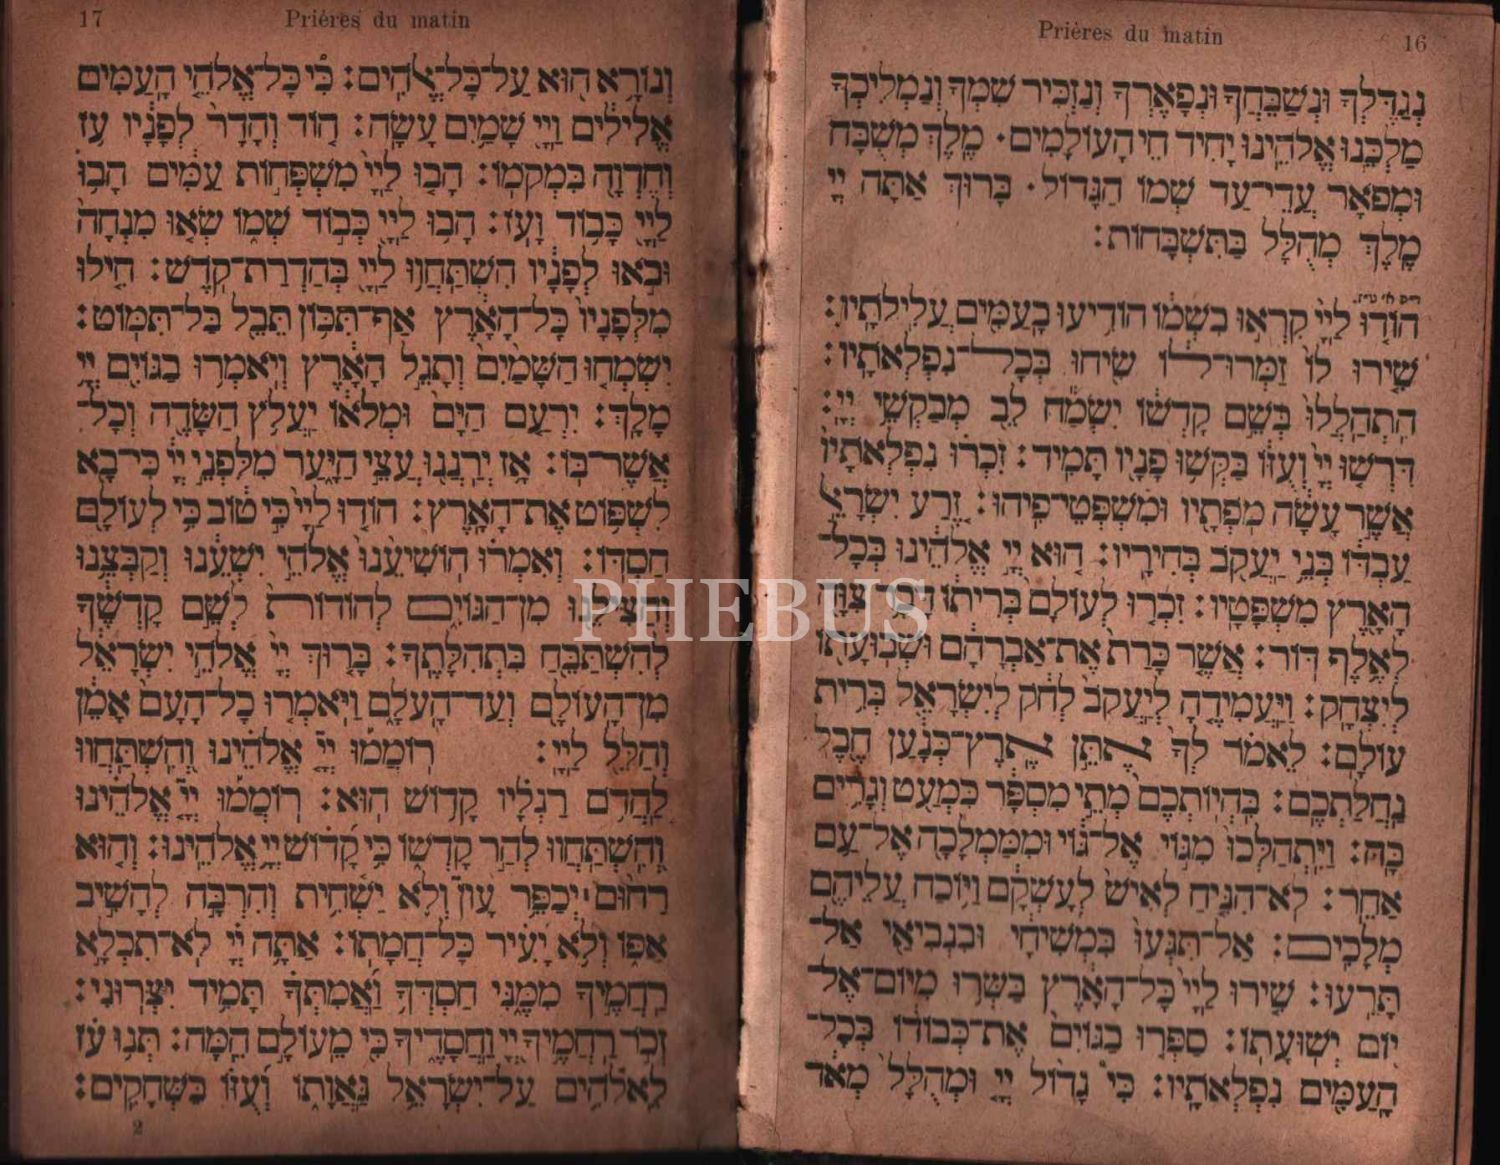 Prières du matin 16
נְגַדֶּלְךָ וּנְשַׁבֵּחֲךָ וּנְפָאֶרְךָ וְנַזְכִּיר שִׁמְךָ וְנַמְלִיכְךָ
מַלְכֵּנוּ אֱלֹהֵינוּ יָחִיד חֵי הָעוֹלָמִים· מֶלֶךְ מְשֻׁבָּח
וּמְפֹאָר עֲדֵי־עַד שְׁמוֹ הַגָּדוֹל· בָּרוּךְ אַתָּה יְיָ
מֶלֶךְ מְהֻלָּל בַּתִּשְׁבָּחוֹת:
הוֹדוּ לַיְיָ קִרְאוּ בִשְׁמוֹ הוֹדִיעוּ בָעַמִּים עֲלִילֹתָיו:
שִׁירוּ לוֹ זַמְּרוּ־לוֹ שִׂיחוּ בְּכָל־נִפְלְאֹתָיו:
הִתְהַלְלוּ בְּשֵׁם קָדְשׁוֹ יִשְׂמַח לֵב מְבַקְשֵׁי יְיָ:
דִּרְשׁוּ יְיָ וְעֻזּוֹ בַּקְּשׁוּ פָנָיו תָּמִיד: זִכְרוּ נִפְלְאֹתָיו
אֲשֶׁר עָשָׂה מֹפְתָיו וּמִשְׁפְּטֵי־פִיהוּ: זֶרַע יִשְׂרָאֵל
עַבְדּוֹ בְּנֵי יַעֲקֹב בְּחִירָיו: הוּא יְיָ אֱלֹהֵינוּ בְּכָל־
הָאָרֶץ מִשְׁפָּטָיו: זִכְרוּ לְעוֹלָם בְּרִיתוֹ דָּבָר צִוָּה
לְאֶלֶף דּוֹר: אֲשֶׁר כָּרַת אֶת־אַבְרָהָם וּשְׁבוּעָתוֹ
לְיִצְחָק: וַיַּעֲמִידֶהָ לְיַעֲקֹב לְחֹק לְיִשְׂרָאֵל בְּרִית
עוֹלָם: לֵאמֹר לְךָ אֶתֵּן אֶרֶץ־כְּנָעַן חֶבֶל
נַחֲלַתְכֶם: בִּהְיוֹתְכֶם מְתֵי מִסְפָּר כִּמְעַט וְגָרִים
בָּהּ: וַיִּתְהַלְּכוּ מִגּוֹי אֶל־גּוֹי וּמִמַּמְלָכָה אֶל־עַם
אַחֵר: לֹא־הִנִּיחַ לְאִישׁ לְעָשְׁקָם וַיּוֹכַח עֲלֵיהֶם
מְלָכִים: אַל־תִּגְּעוּ בִּמְשִׁיחָי וּבִנְבִיאַי אַל־
תָּרֵעוּ: שִׁירוּ לַיְיָ כָּל־הָאָרֶץ בַּשְּׂרוּ מִיּוֹם־אֶל־
יוֹם יְשׁוּעָתוֹ: סַפְּרוּ בַגּוֹיִם אֶת־כְּבוֹדוֹ בְּכָל־
הָעַמִּים נִפְלְאֹתָיו: כִּי גָדוֹל יְיָ וּמְהֻלָּל מְאֹד
17 Prières du matin
וְנוֹרָא הוּא עַל־כָּל־אֱלֹהִים: כִּי כָּל־אֱלֹהֵי הָעַמִּים
אֱלִילִים וַיְיָ שָׁמַיִם עָשָׂה: הוֹד וְהָדָר לְפָנָיו עֹז
וְחֶדְוָה בִּמְקֹמוֹ: הָבוּ לַיְיָ מִשְׁפְּחוֹת עַמִּים הָבוּ
לַיְיָ כָּבוֹד וָעֹז: הָבוּ לַיְיָ כְּבוֹד שְׁמוֹ שְׂאוּ מִנְחָה
וּבֹאוּ לְפָנָיו הִשְׁתַּחֲווּ לַיְיָ בְּהַדְרַת־קֹדֶשׁ: חִילוּ
מִלְּפָנָיו כָּל־הָאָרֶץ אַף־תִּכּוֹן תֵּבֵל בַּל־תִּמּוֹט:
יִשְׂמְחוּ הַשָּׁמַיִם וְתָגֵל הָאָרֶץ וְיֹאמְרוּ בַגּוֹיִם יְיָ
מָלָךְ: יִרְעַם הַיָּם וּמְלֹאוֹ יַעֲלֹץ הַשָּׂדֶה וְכָל־
אֲשֶׁר־בּוֹ: אָז יְרַנְּנוּ עֲצֵי הַיָּעַר מִלִּפְנֵי יְיָ כִּי־בָא
לִשְׁפּוֹט אֶת־הָאָרֶץ: הוֹדוּ לַיְיָ כִּי טוֹב כִּי לְעוֹלָם
חַסְדּוֹ: וְאִמְרוּ הוֹשִׁיעֵנוּ אֱלֹהֵי יִשְׁעֵנוּ וְקַבְּצֵנוּ
וְהַצִּילֵנוּ מִן־הַגּוֹיִם לְהוֹדוֹת לְשֵׁם קָדְשֶׁךָ
לְהִשְׁתַּבֵּחַ בִּתְהִלָּתֶךָ: בָּרוּךְ יְיָ אֱלֹהֵי יִשְׂרָאֵל
מִן־הָעוֹלָם וְעַד־הָעֹלָם וַיֹּאמְרוּ כָל־הָעָם אָמֵן
וְהַלֵּל לַיְיָ: רוֹמְמוּ יְיָ אֱלֹהֵינוּ וְהִשְׁתַּחֲווּ
לַהֲדֹם רַגְלָיו קָדוֹשׁ הוּא: רוֹמְמוּ יְיָ אֱלֹהֵינוּ
וְהִשְׁתַּחֲווּ לְהַר קָדְשׁוֹ כִּי קָדוֹשׁ יְיָ אֱלֹהֵינוּ: וְהוּא
רַחוּם יְכַפֵּר עָוֹן וְלֹא יַשְׁחִית וְהִרְבָּה לְהָשִׁיב
אַפּוֹ וְלֹא יָעִיר כָּל־חֲמָתוֹ: אַתָּה יְיָ לֹא־תִכְלָא
רַחֲמֶיךָ מִמֶּנִּי חַסְדְּךָ וַאֲמִתְּךָ תָּמִיד יִצְּרוּנִי:
זְכֹר רַחֲמֶיךָ יְיָ וַחֲסָדֶיךָ כִּי מֵעוֹלָם הֵמָּה: תְּנוּ עֹז
לֵאלֹהִים עַל־יִשְׂרָאֵל גַּאֲוָתוֹ וְעֻזּוֹ בַּשְּׁחָקִים:
2
PHEBUS